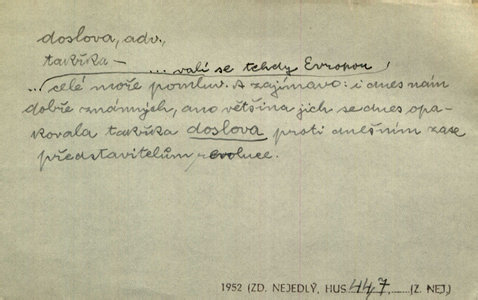 doslova, adv.,
takřka —
... valí se tehdy Evropou
... celé moře pomluv. A zajímavo: i dnes nám
dobře známých, ano většina jich se dnes opa-
kovala takřka doslova proti dnešním zase
představitelům revoluce.
1952 (ZD. NEJEDLÝ, HUS 447, ......... (Z. NEJ.)